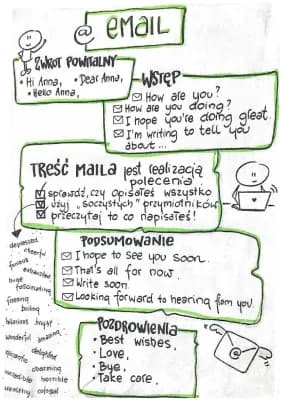 @ EMAIL
ZWROT POWITALNY
• Hi Anna, • Dear Anna,
• Hello Anna,
WSTĘP
How are you?
How are you doing?
I hope you're doing great.
I'm writing to tell you
about ...
TREŚĆ MAILA jest realizacją
polecenia.
sprawdź, czy opisałeś wszystko
użyj "soczystych" przymiotników
przeczytaj to co napisałeś!
depressed
cheerful
furious
exhausted
huge
fascinating
freezing
boiling
hilarious
wonderful amazing
delighted
charming
incredible horrible
wealthy colossal
PODSUMOWANIE
I hope to see you soon.
That's all for now.
Write soon
Looking forward to hearing from you.
POZDROWIENIA
• Best wishes,
• Love,
• Bye,
• Take care.
@